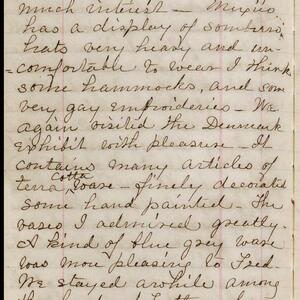 much interest - Mexico
has a display of sombrero
hats very heavy and un-
=comfortable to wear I think
some hammocks, and some
very gay embroideries - We
again visited the Denmark
exhibit with pleasure - It
contains many articles of
terra Cotta ware - finely decorated
some hand painted. The
vases I admired greatly.
A kind of blue grey ware
was more pleasing to Fred
We stayed awhile among